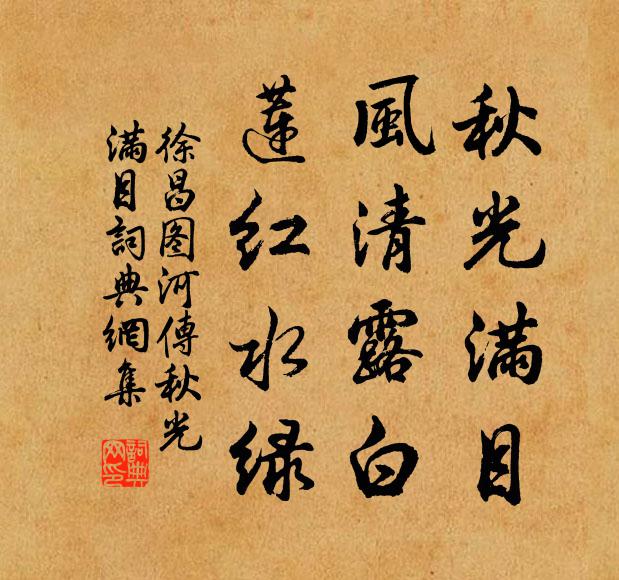 秋光滿目
風清露白
蓮紅水绿
徐昌图河傳秋光
滿目詞典網集
詞典网印